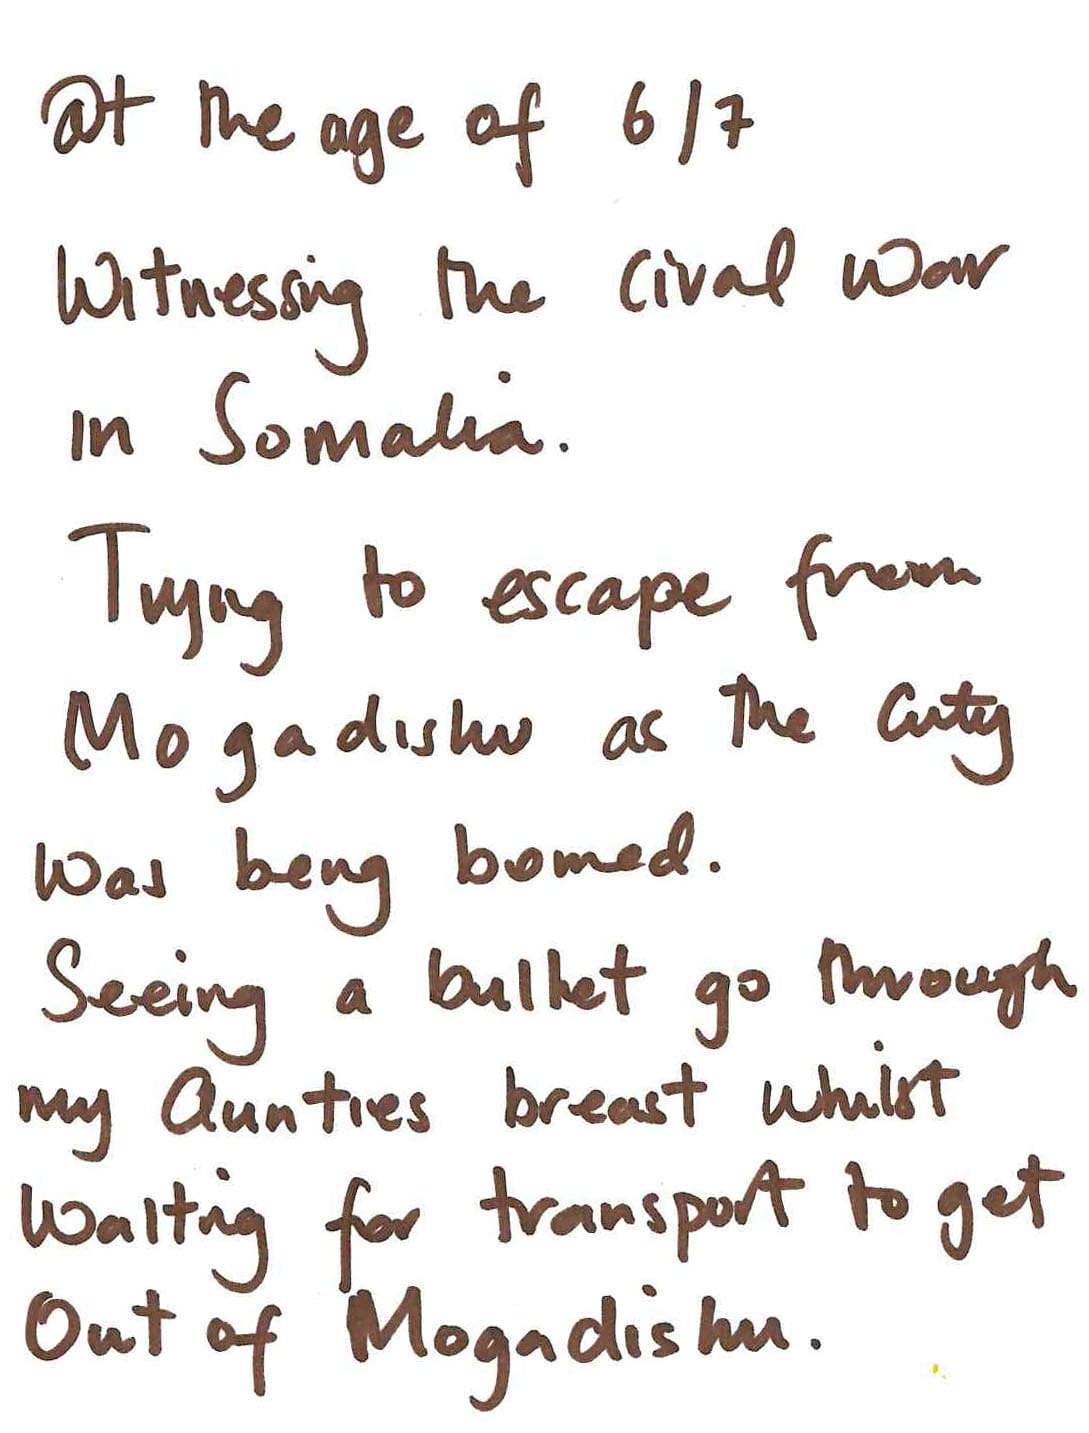 at the age of 6/7
Witnessing the cival war
in Somalia.
Trying to escape from
Mogadishu as the City
was being bomed.
Seeing a bullet go through
my Aunties breast whilst
waiting for transport to get
Out of Mogadishu.